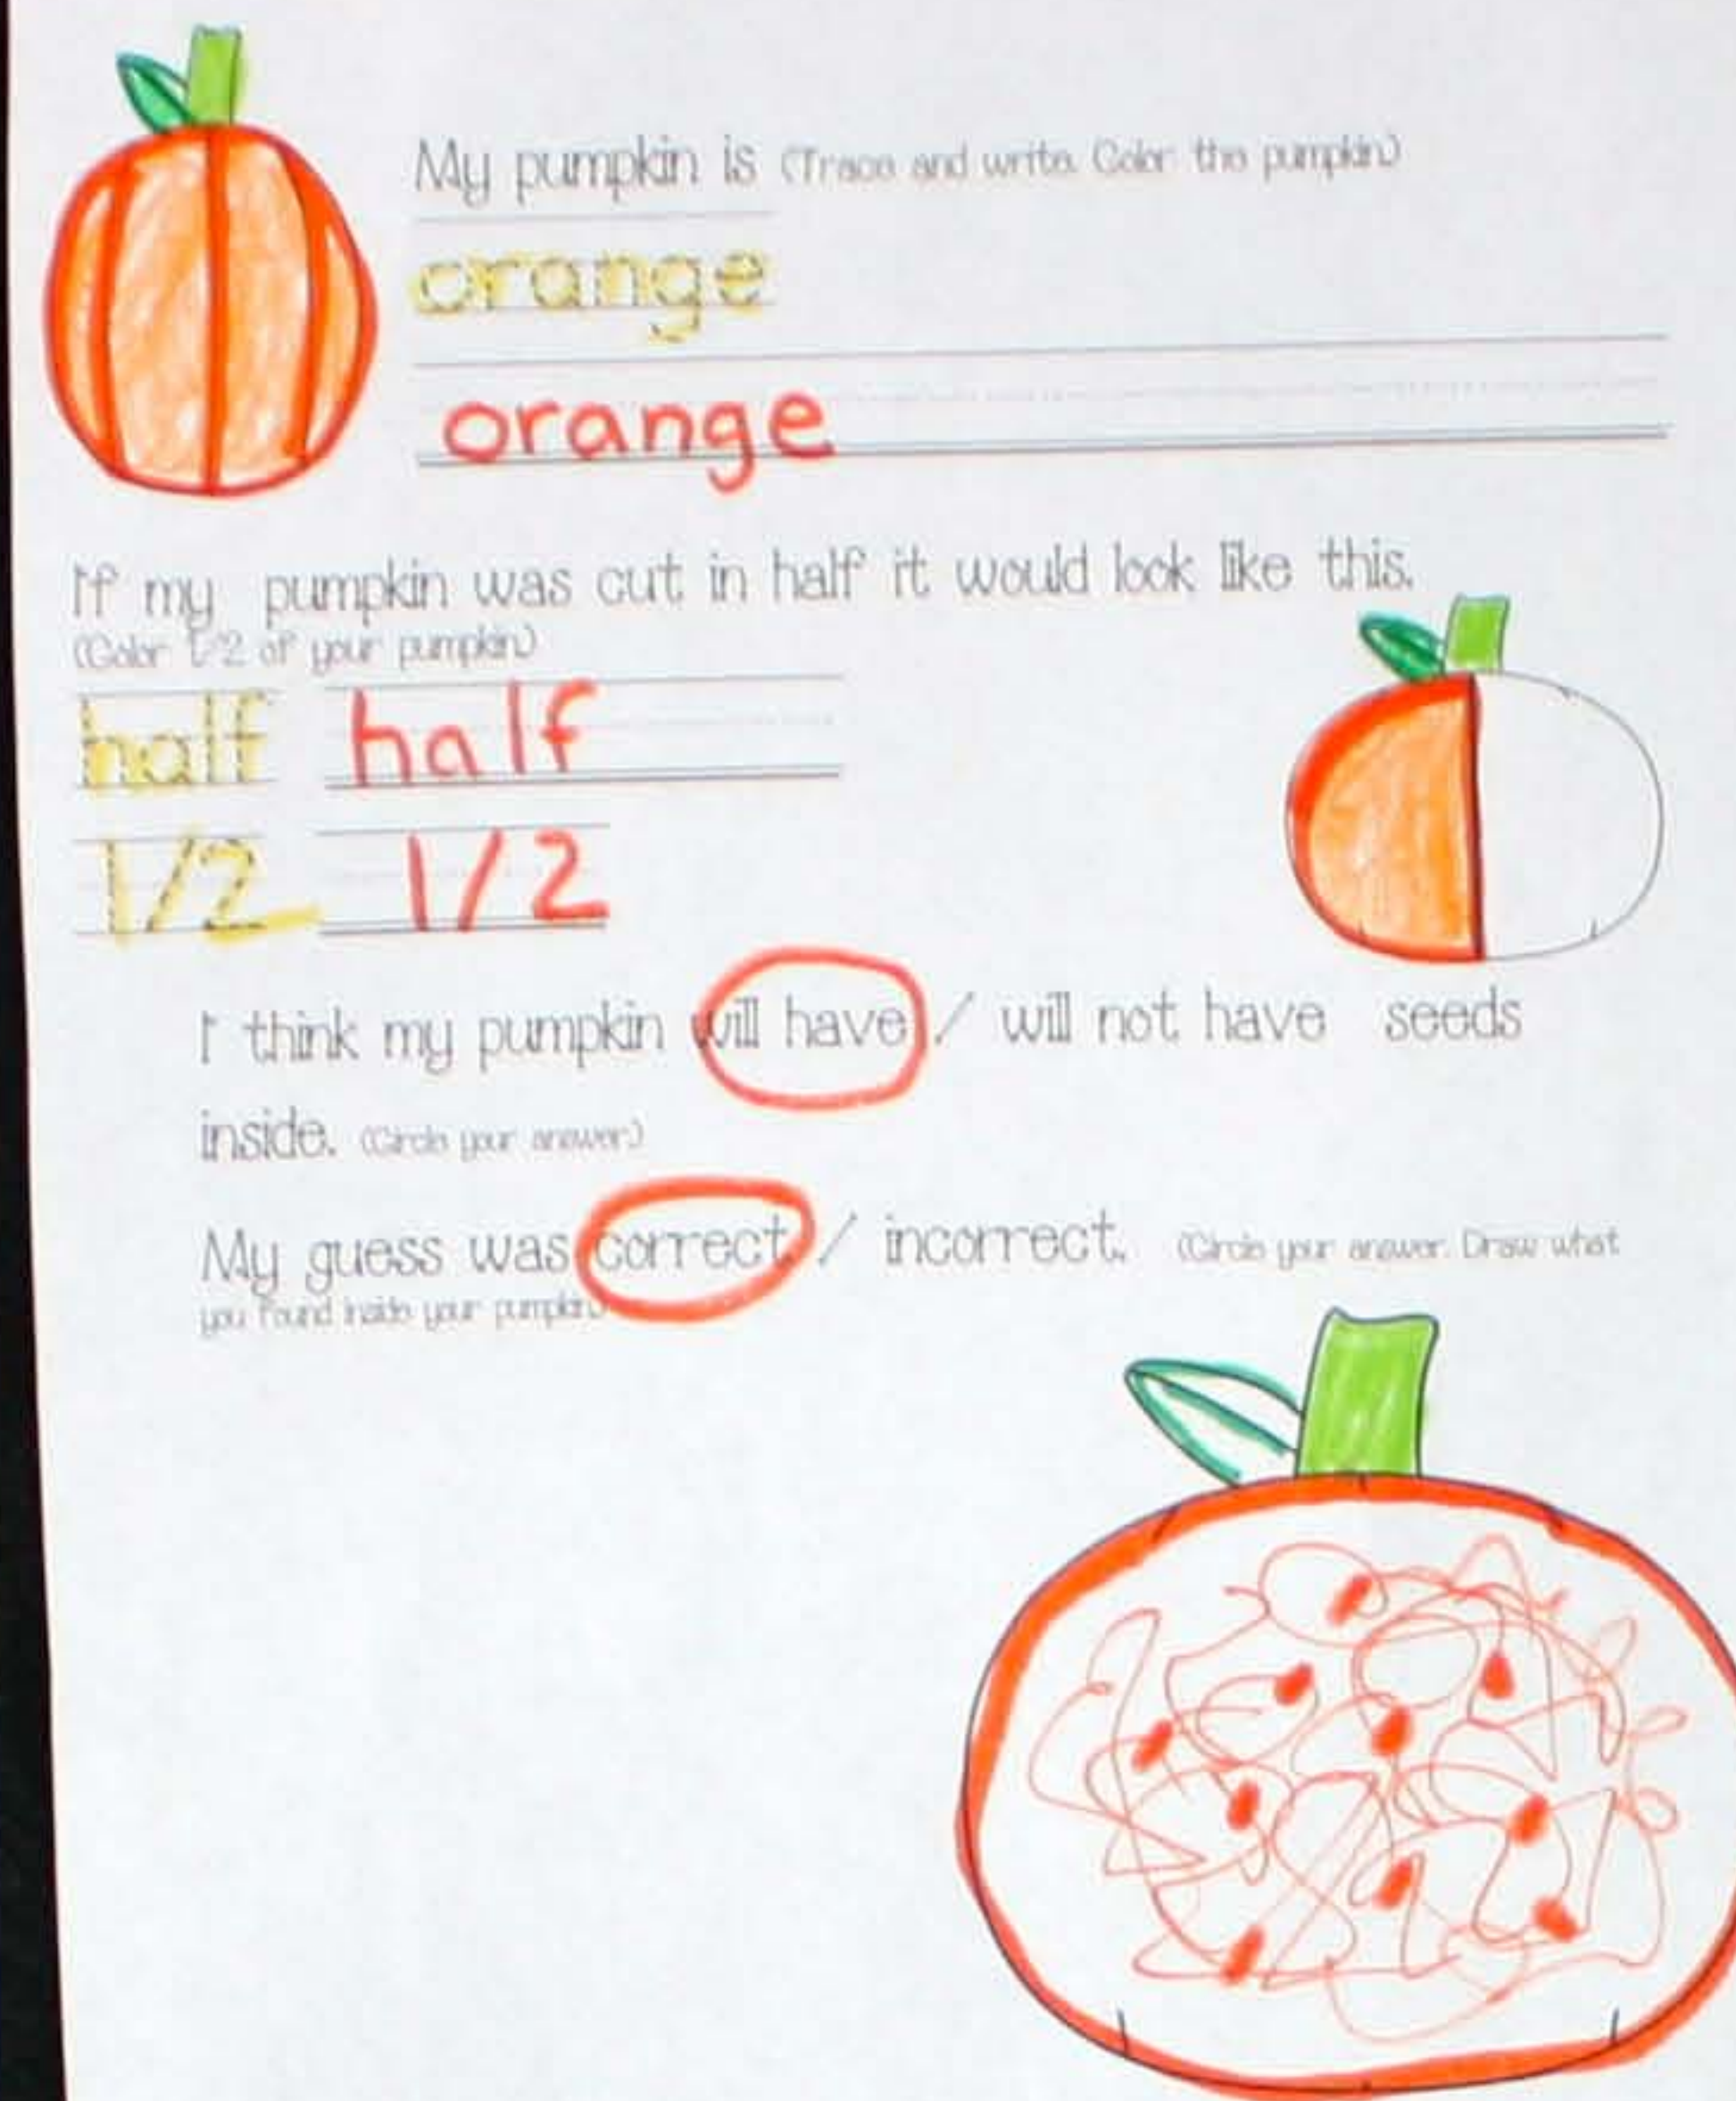 My pumpkin is (Trace and write. Color the pumpkin.)
orange
orange
If my pumpkin was cut in half it would look like this.
(Color 1/2 of your pumpkin.)
half half
1/2 1/2
I think my pumpkin will have / will not have seeds
inside. (Circle your answer.)
My guess was correct. / incorrect. (Circle your answer. Draw what
you found inside your pumpkin.)